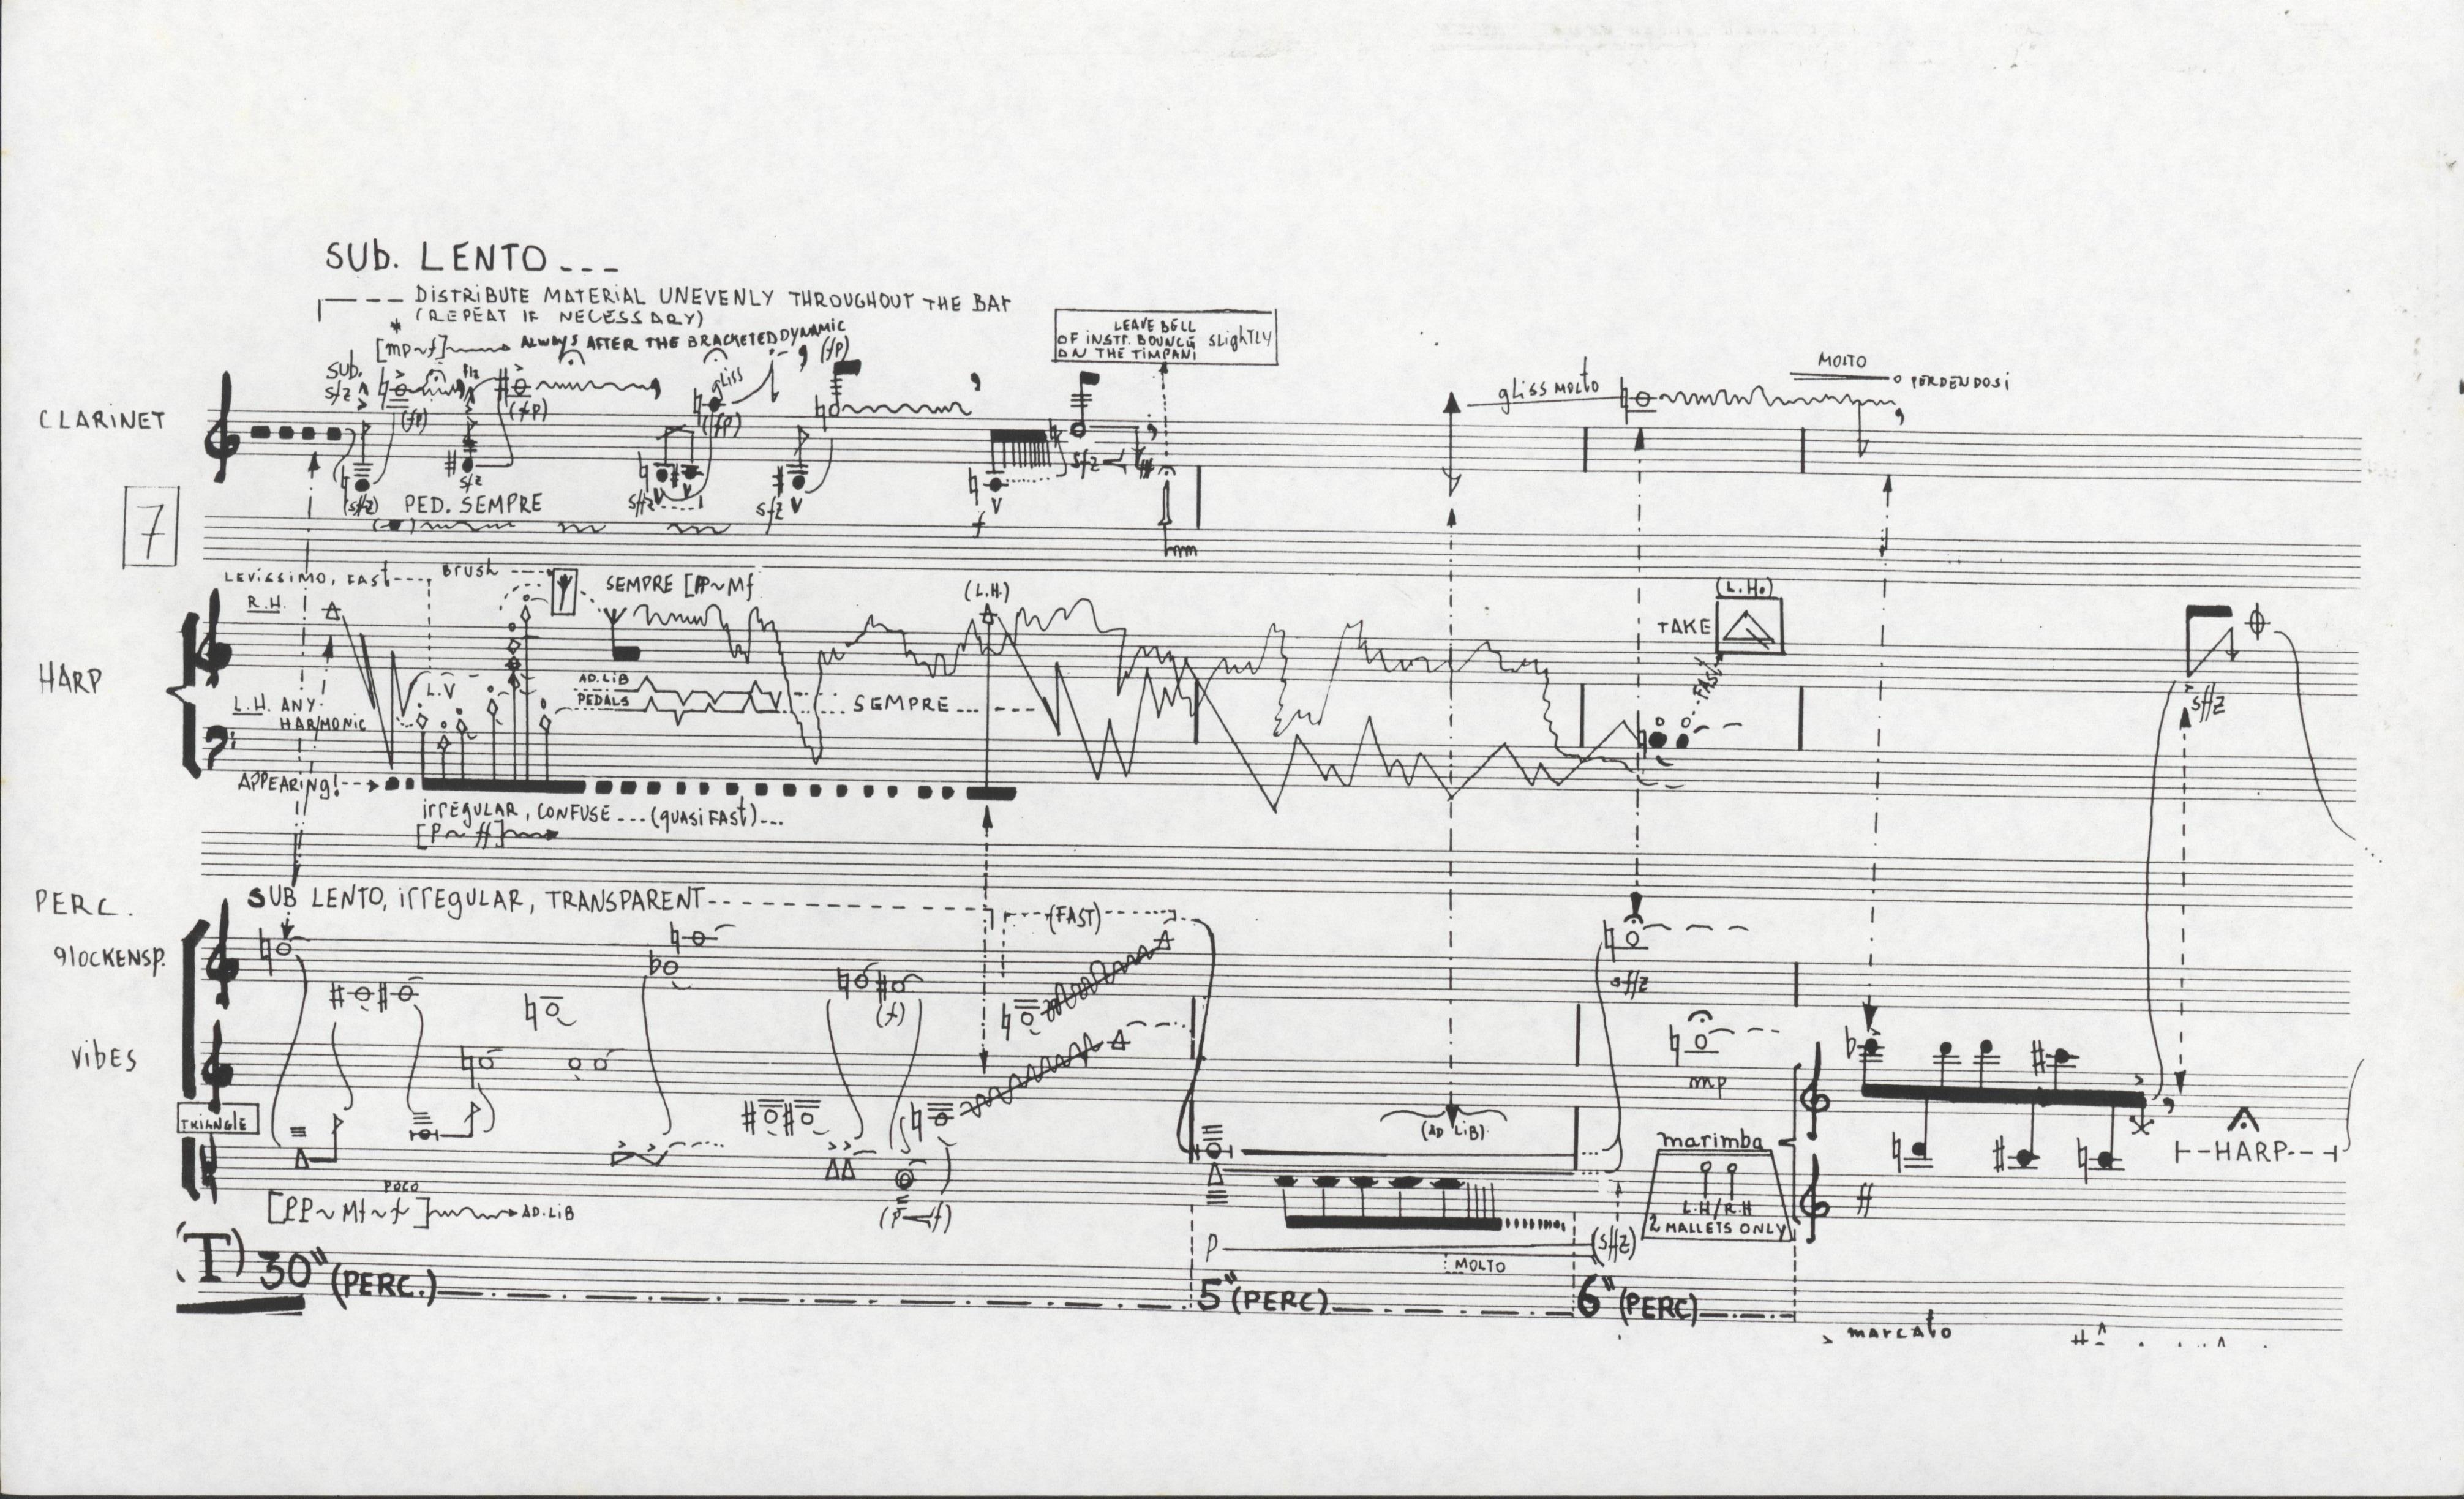 SUb. LENTO ---
DISTRIBUTE MATERIAL UNEVENLY THROUGHOUT THE BAR
(REPEAT IF NECESSARY)
*
[mp~f] ALWAYS AFTER THE BRACKETED DYNAMIC
(fp)
LEAVE BELL
OF INSTR. BOUNCE SLIGHTLY
ON THE TIMPANI
sub.
sfz
gliss
gliss MOLTO
MOLTO
o PERDENDOSI
CLARINET
(fp)
(fp)
(fp)
sfz
sfz
(sffz)
sffz
sfz
f
PED. SEMPRE
7
LEVISSIMO, FAST
BRUSH
SEMPRE [PP~Mf
(L.H.)
(L.H.)
R.H.
TAKE
FAST
HARP
L.V
AD.LIB
PEDALS
SEMPRE
L.H. ANY
HARMONIC
sffz
APPEARING!
IRREGULAR, CONFUSE ... (QUASI FAST) ...
[P~ff]
PERC.
SUB LENTO, IRREGULAR, TRANSPARENT
(FAST)
GLOCKENSP.
(f)
sffz
VIBES
mp
TRIANGLE
(AD LIB)
marimba
HARP
L.H/R.H
2 MALLETS ONLY
ff
POCO
[PP~Mf~f] AD.LIB
(P f)
P
(sffz)
MOLTO
(T) 30" (PERC.)
5" (PERC)
6" (PERC)
> marcato